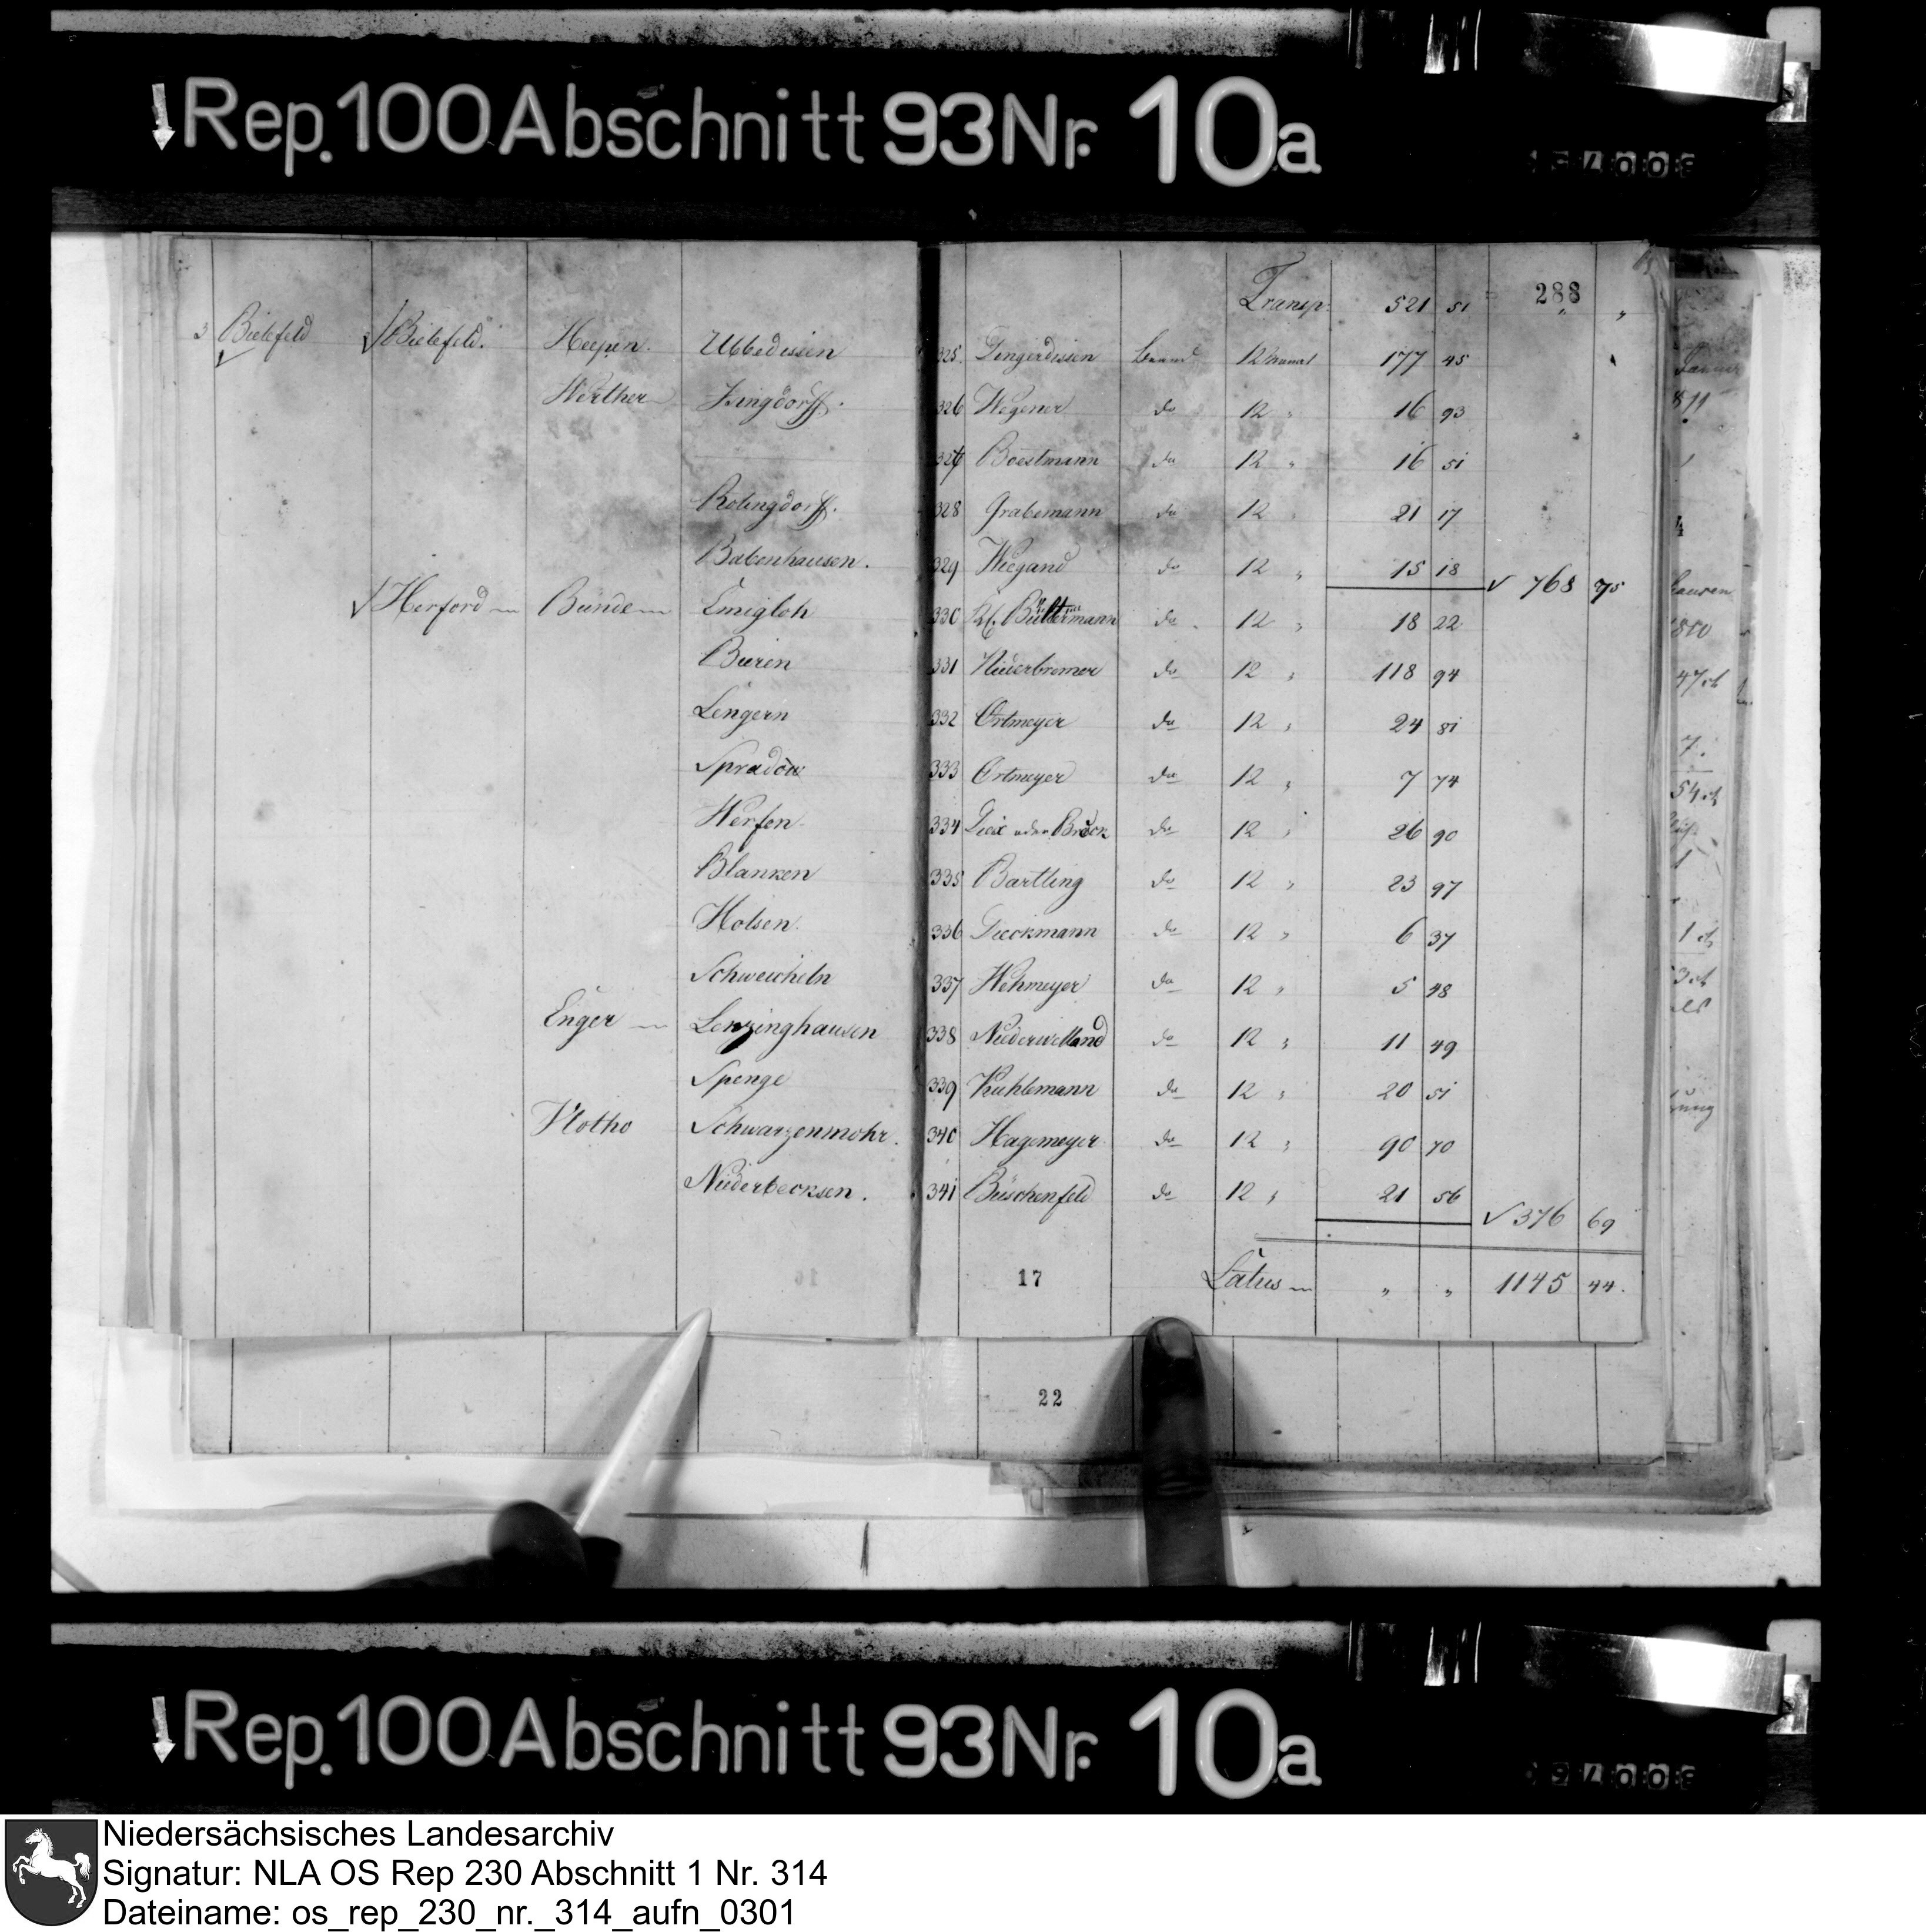 Rep. 100 Abschnitt 93 Nr. 10a
288
Transp. 521 51 " "
3 Bielefeld Bielefeld. Heepen. Ubbedissen 325. Dingerdissen 12 177 45
Werther Isingdorff. 326 Wegener do 12 " 16 93
327 Boestmann do 12 " 16 51
Rotingdorff. 328 Grabemann do 12 " 21 17
Babenhausen. 329 Wiegand do 12 " 15 18 √ 768 75
√ Herford Bünde Ennigloh 330 do. 12 " 18 22
Bieren 331 Niederbremer do 12 " 118 94
Lengern 332 Ortmeyer do 12 " 24 81
Spradow 333 Ortmeyer do 12 " 7 74
Werfen 334 oder Brock do 12 " 26 90
Blanken 335 Bartling do 12 " 23 97
Holsen. 336 Dieckmann do 12 " 6 37
Schweicheln 337 Wehmeyer do 12 " 5 48
Enger Lenzinghausen 338 Niederwelland do 12 " 11 49
Spenge 339 Kuhlemann do 12 " 20 51
Vlotho Schwarzenmohr. 340 Hagemeyer do 12 " 90 70
Niederbecksen. 341 Büschenfeld do 12 " 21 56
√ 376 69
16
17 Latus " " 1145 44.
22
Rep. 100 Abschnitt 93 Nr. 10a
Niedersächsisches Landesarchiv
Signatur: NLA OS Rep 230 Abschnitt 1 Nr. 314
Dateiname: os_rep_230_nr._314_aufn_0301